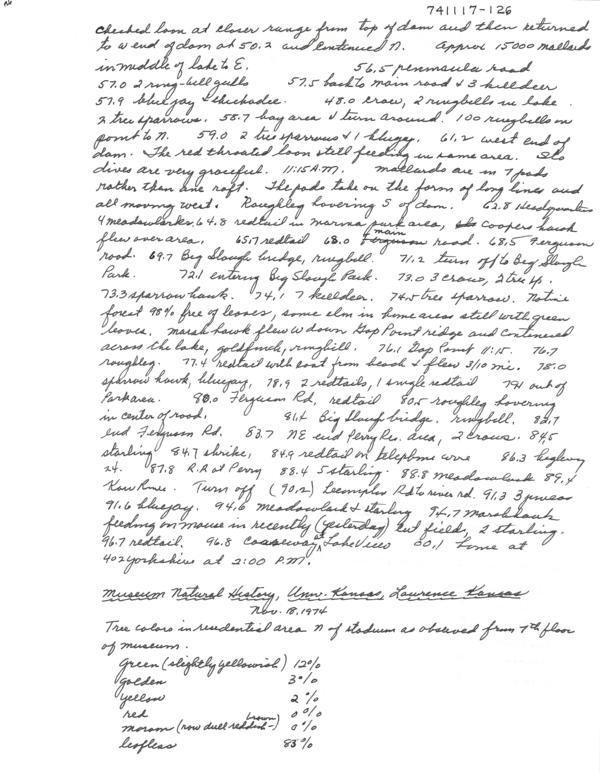 741117-126
checked loon at closer range from top of dam and then returned
to w end of dam at 50.2 and continued N. Approx 15000 mallards
in middle of lake to E. 56.5 peninsula road
57.0 2 ring-bill gulls 57.5 back to main road & 3 killdeer
57.9 bluejay & chickadee. 48.0 crow, 2 ringbells in lake.
2 tree sparrows. 58.7 bay area & turn around. 100 ringbells on
point to N. 59.0 2 tree sparrows & 1 bluejay. 61.2 west end of
dam. The red throated loon still feeding in same area. Its
dives are very graceful. 11:15 A.M. mallards are in 7 pods
rather than one raft. The pods take on the form of long lines and
all moving west. Roughleg hovering S of dam. 62.8 Headquarters
4 meadowlarks. 64.8 redtail in marina park area, coopers hawk
flew over area. 65.7 redtail 68.0 main road. 68.5 Ferguson
road. 69.7 Big Slough bridge, ringbill. 71.2 turn off to Big Slough
Park. 72.1 entering Big Slough Park. 73.0 3 crows, 2 tree sp.
73.3 sparrow hawk. 74.1 7 killdeer. 74.5 tree sparrow. Notice
forest 98% free of leaves, some elm in home areas still with green
leaves. marsh hawk flew W down Gap Point ridge and continued
across the lake, goldfinch, ringbill. 76.1 Gap Point 11:15. 76.7
roughleg. 77.4 redtail with east from beach & flew 3/10 mi. 78.0
sparrow hawk, bluejay, 78.9 2 redtails, 1 single redtail 79.1 out of
Park area. 80.0 Ferguson Rd, redtail 80.5 roughleg hovering
in center of road. 81.4 Big Slough bridge. ringbill. 82.7
end Ferguson Rd. 83.7 NE end Perry Res. area, 2 crows. 84.5
starling 84.7 shrike, 84.9 redtail on telephone wire 86.3 highway
24. 87.8 R.R at Perry 88.4 5 starling. 88.8 meadowlark 89.4
Kaw River. Turn off (90.2) Lecompton Rd to river rd. 91.3 3 juncos
91.6 bluejay. 94.6 meadowlark & starling 94.7 Marsh hawk
feeding on mouse in recently (yesterday) cut fields, 2 starling.
96.7 redtail. 96.8 causeway at Lake View 00.1 home at
402 Yorkshire at 2:00 P.M.
Museum Natural History, Univ. Kansas, Lawrence Kansas
Nov. 18, 1974
Tree colors in residential area N of stadium as observed from 7th floor
of museum.
Green (slightly yellowish) 12%
golden 3%
yellow 2%
red 0%
maroon (now dull reddish-brown) 0%
leafless 83%